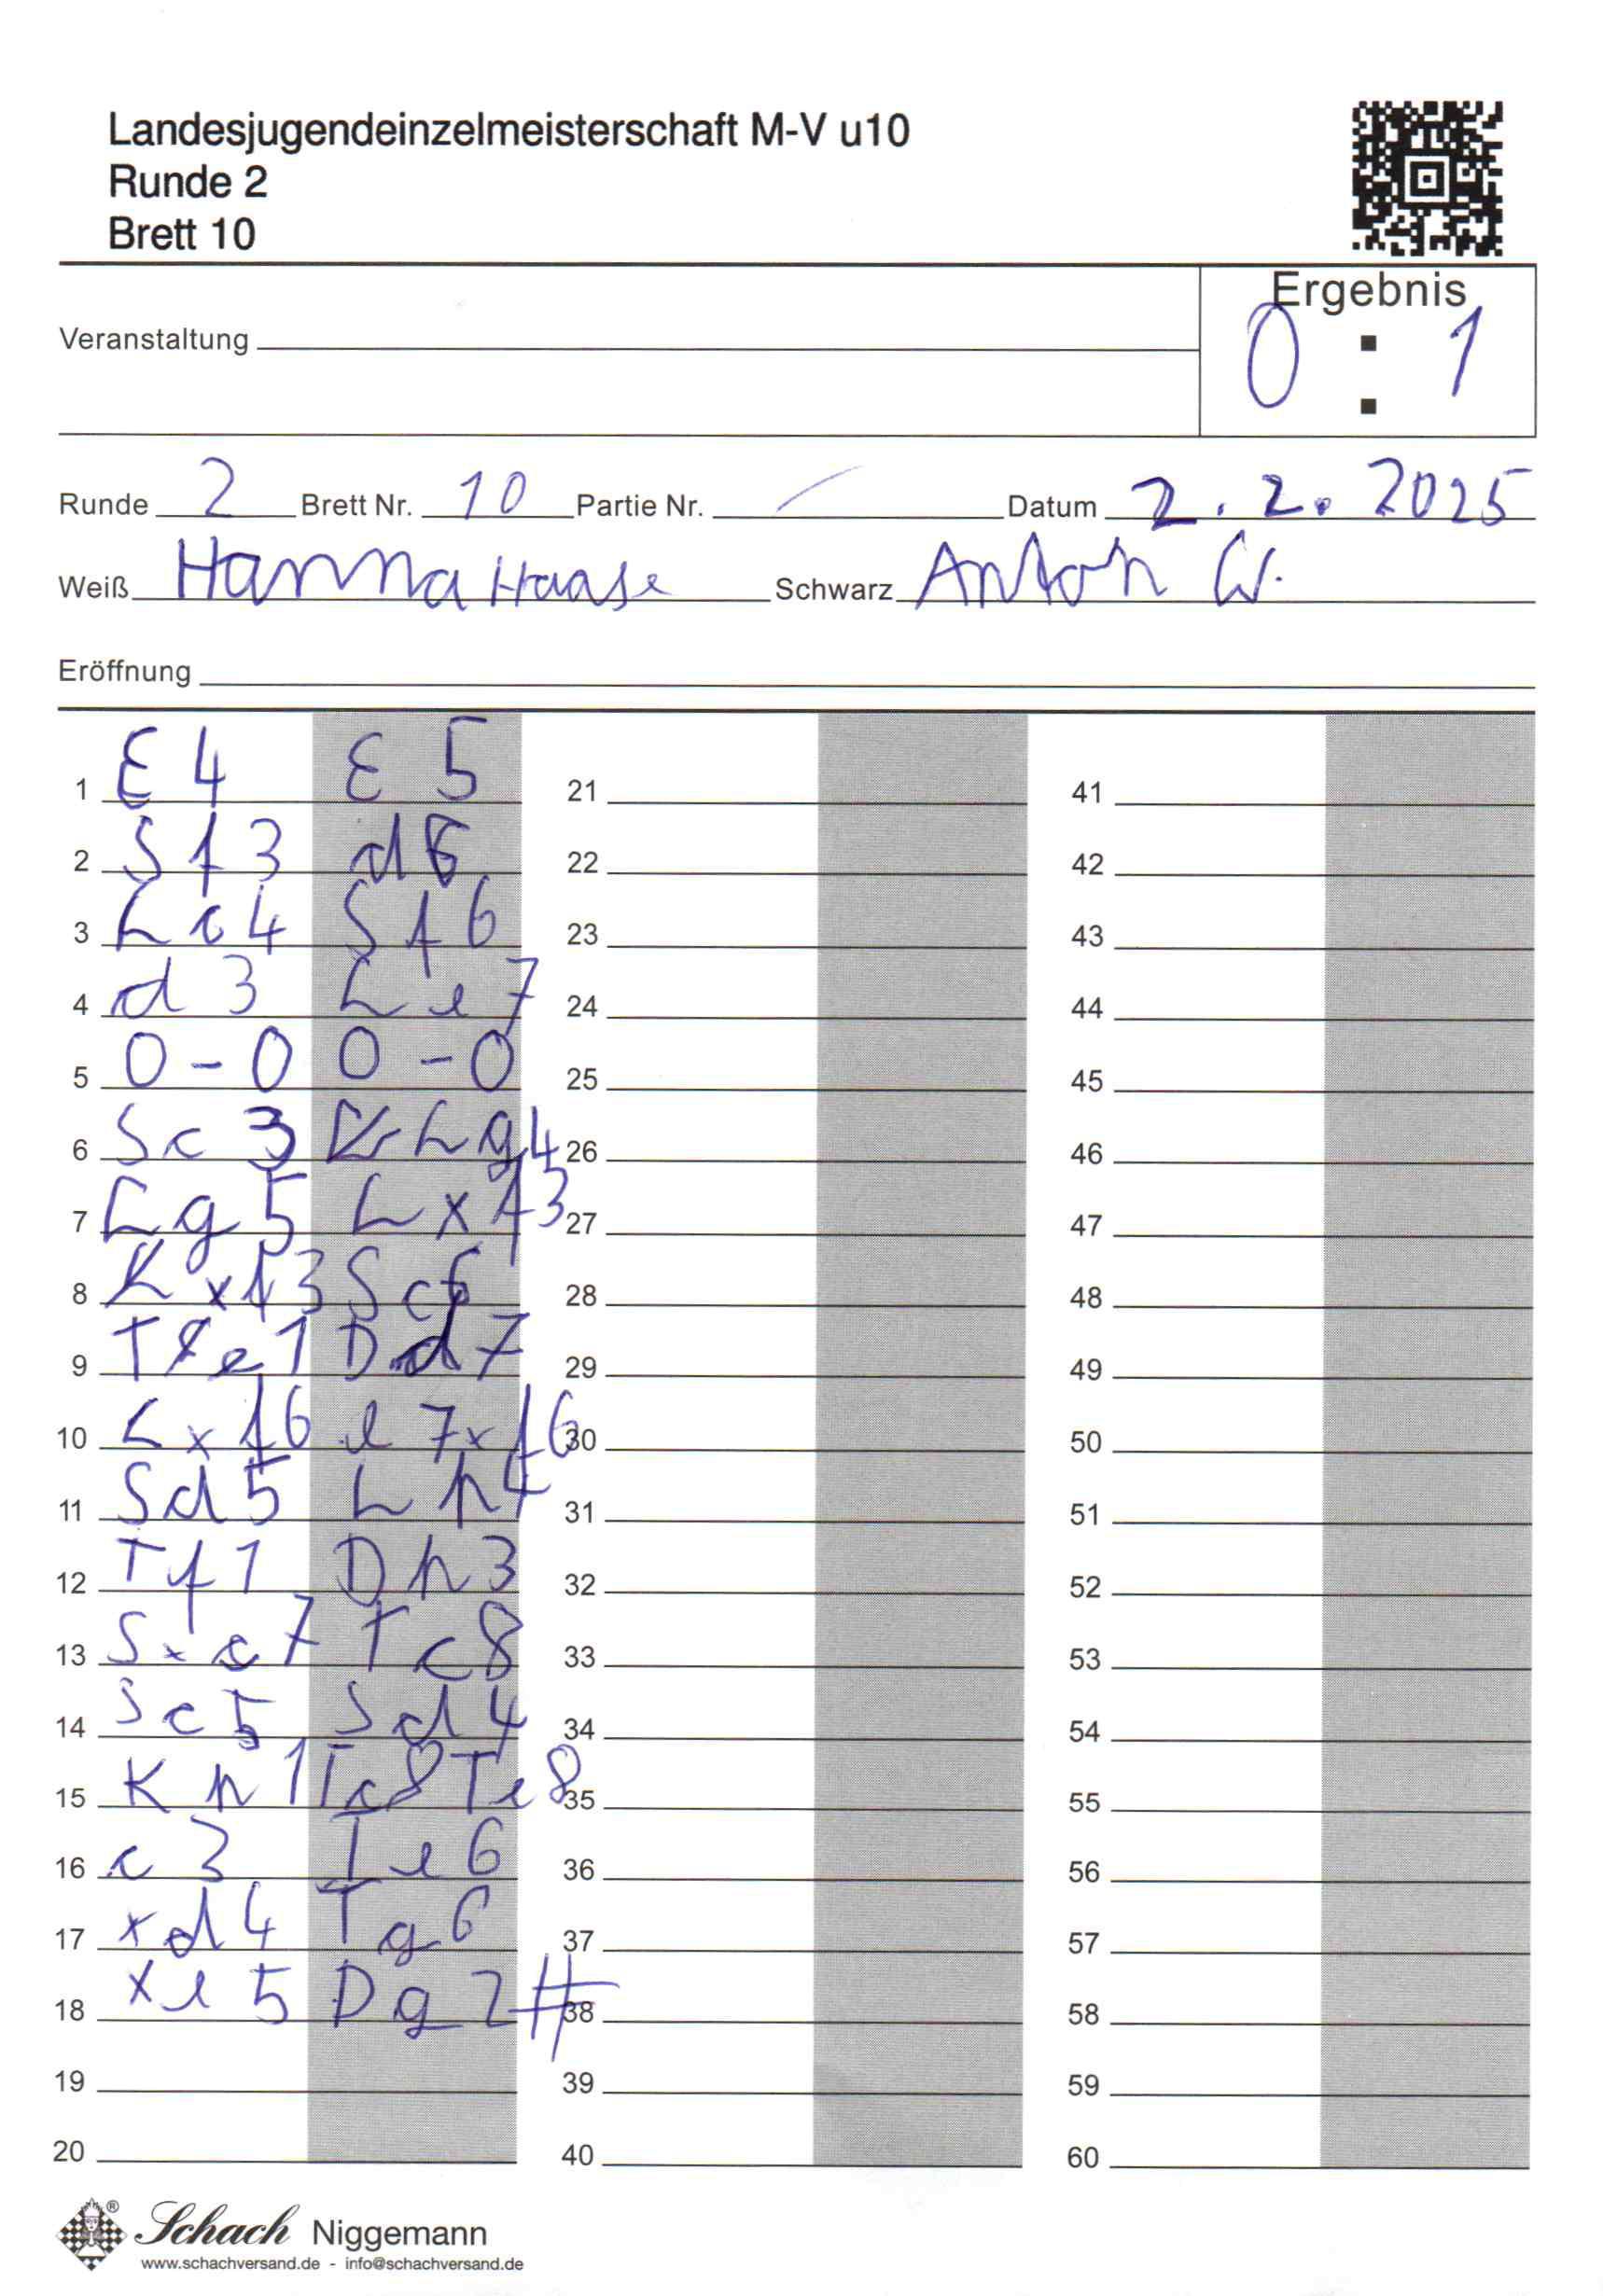 Landesjugendeinzelmeisterschaft M-V u10
Runde 2
Brett 10
Ergebnis
0 : 1
Veranstaltung
Runde 2 Brett Nr. 10 Partie Nr. Datum 2.2.2025
Weiß Hanna Haase Schwarz Anton W.
Eröffnung
1 E4 E5 21 41
2 Sf3 d6 22 42
3 Lc4 Sf6 23 43
4 d3 Le7 24 44
5 0-0 0-0 25 45
6 Sc3 Lg4 26 46
7 Lg5 Lxf3 27 47
8 Kxf3 Sc6 28 48
9 Te1 Dd7 29 49
10 Lxf6 e7xf6 30 50
11 Sd5 Lh4 31 51
12 Tf1 Dh3 32 52
13 Sxc7 Tc8 33 53
14 Sc5 Sd4 34 54
15 Kh1 Tc8 Te8 35 55
16 c3 Te6 36 56
17 xd4 Tg6 37 57
18 xe5 Dg2# 38 58
19 39 59
20 40 60
® Schach Niggemann
www.schachversand.de - info@schachversand.de